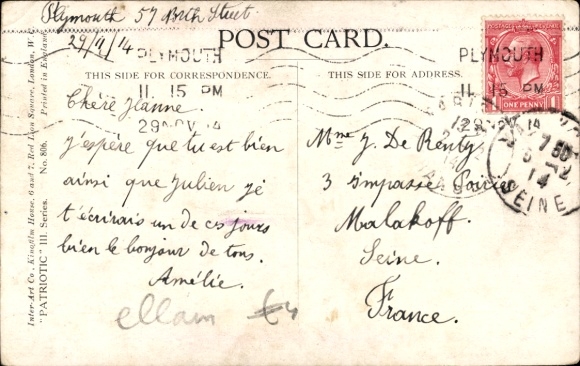 Plymouth 57 North Street.
29/11/14
POST CARD.
THIS SIDE FOR CORRESPONDENCE.
THIS SIDE FOR ADDRESS.
PLYMOUTH
11.15 PM
29 NOV 14
PLYMOUTH
11.15 PM
NOV 14
POSTAGE REVENUE
ONE PENNY
7 50
14
SEINE
Chère Jeanne.
j'espère que tu est bien
ainsi que Julien je
t'écrirais un de ces jours
bien le bonjour de tous.
Amélie.
Mme J. De Renty,
3 impasse Poirier
Malakoff.
Seine.
France.
£4
Inter-Art Co., Kingfilm House, 6 and 7, Red Lion Square, London, W.C.
"PATRIOTIC" III. Series. No. 806. Printed in England.